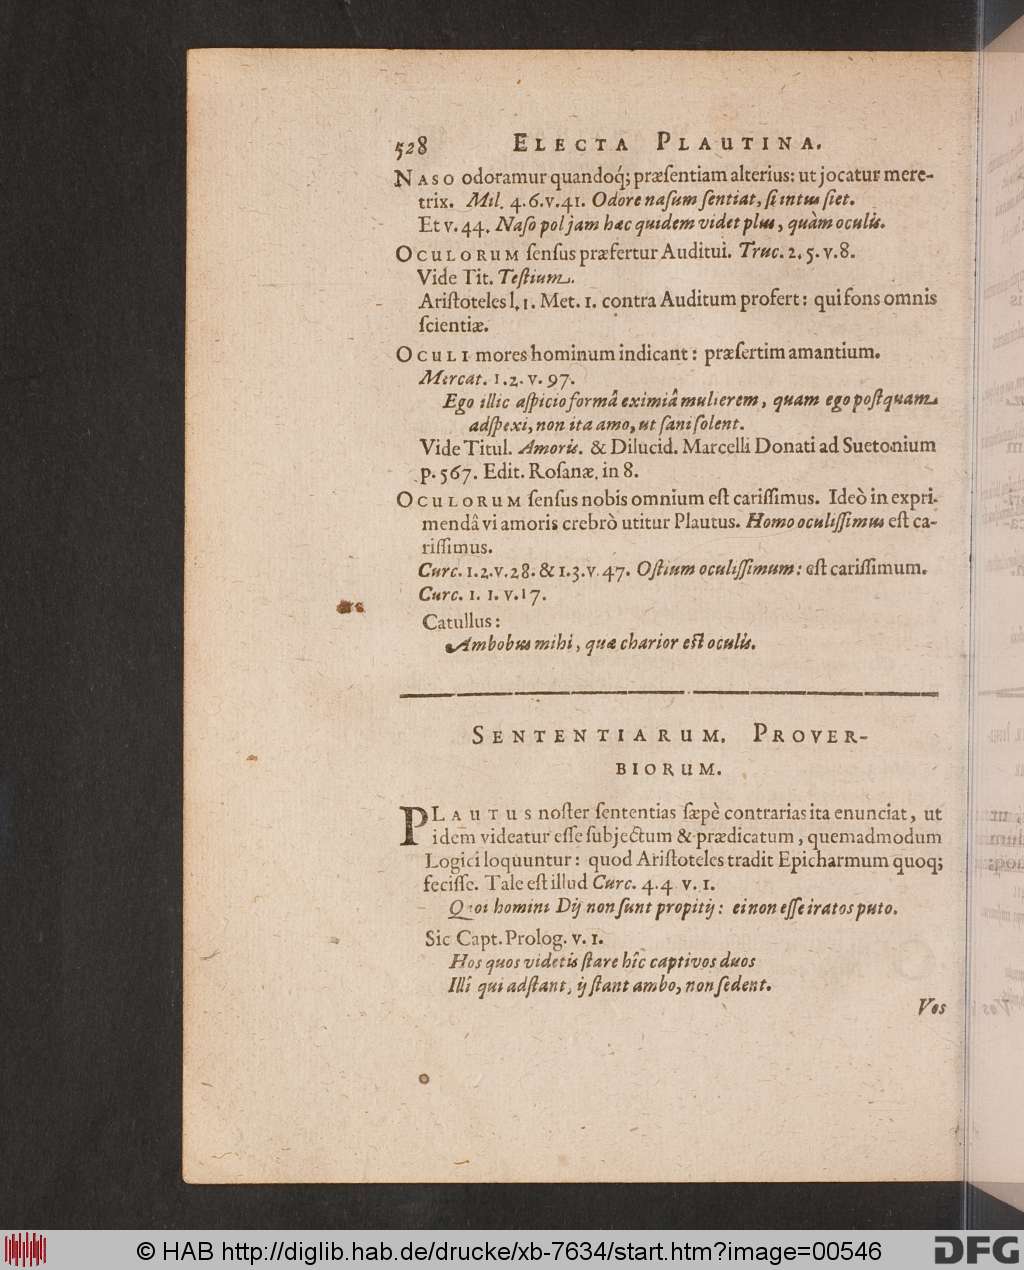 528 ELECTA PLAUTINA.
NASO odoramur quandoq́; præſentiam alterius: ut jocatur mere-
trix. Mil. 4. 6. v. 41. Odore naſum ſentiat, ſi intus ſiet.
Et v. 44. Naſo pol jam hæc quidem videt plus, quàm oculis.
OCULORUM ſenſus præfertur Auditui. Truc. 2. 5. v. 8.
Vide Tit. Teſtium.
Ariſtoteles l. 1. Met. 1. contra Auditum profert: qui fons omnis
ſcientiæ.
OCULI mores hominum indicant: præſertim amantium.
Mercat. 1. 2. v. 97.
Ego illic aſpicio formâ eximiâ mulierem, quam ego poſtquam
adſpexi, non ita amo, ut ſani ſolent.
Vide Titul. Amoris. & Dilucid. Marcelli Donati ad Suetonium
p. 567. Edit. Roſanæ, in 8.
OCULORUM ſenſus nobis omnium eſt cariſſimus. Ideò in expri-
mendâ vi amoris crebrò utitur Plautus. Homo oculiſſimus eſt ca-
riſſimus.
Curc. 1. 2. v. 28. & 1. 3. v. 47. Oſtium oculiſſimum: eſt cariſſimum.
Curc. 1. 1. v. 17.
Catullus:
Ambobus mihi, quæ charior eſt oculis.
SENTENTIARUM. PROVER-
BIORUM.
PLAUTUS noſter ſententias ſæpè contrarias ita enunciat, ut
idem videatur eſſe ſubjectum & prædicatum, quemadmodum
Logici loquuntur: quod Ariſtoteles tradit Epicharmum quoq;
feciſſe. Tale eſt illud Curc. 4. 4. v. 1.
Quoi homini Dij non ſunt propitij: ei non eſſe iratos puto.
Sic Capt. Prolog. v. 1.
Hos quos videtis ſtare hîc captivos duos
Illi qui adſtant, ij ſtant ambo, non ſedent.
Vos
© HAB http://diglib.hab.de/drucke/xb-7634/start.htm?image=00546
DFG